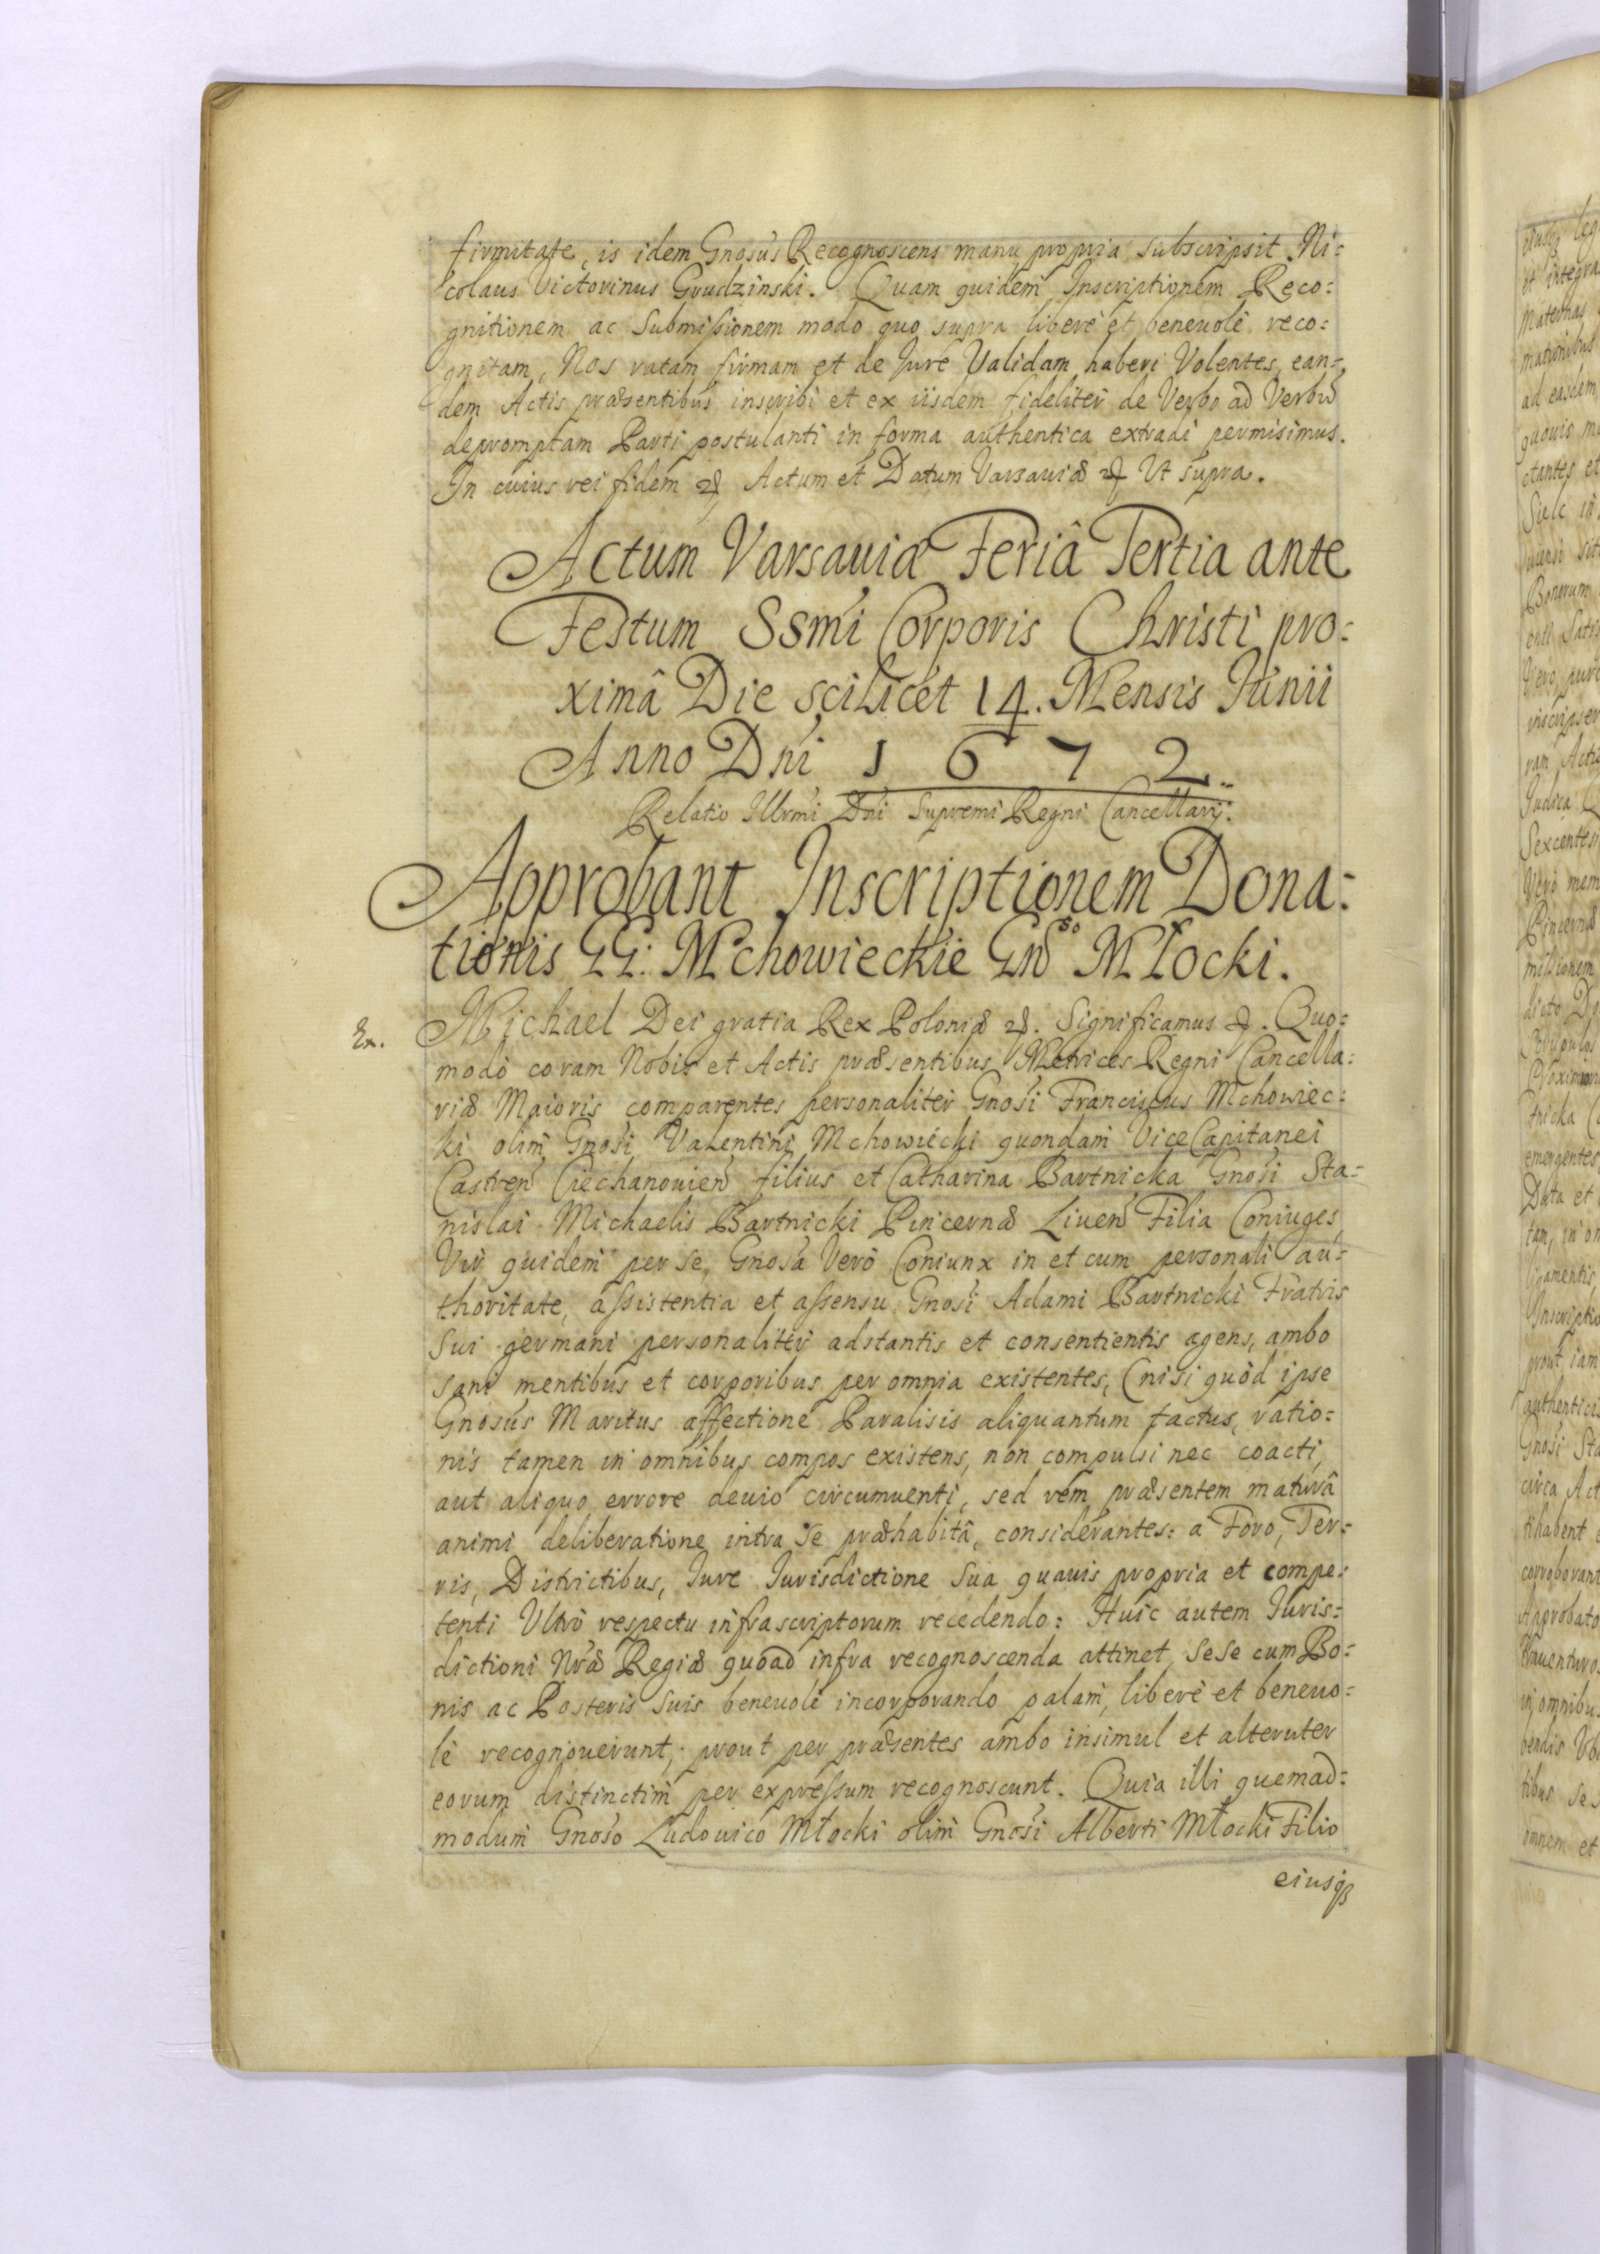 firmitate, is idem Gnosus Recognoscens manu propria subscripsit Ni:
colaus Victorinus Grudzinski. Quam quidem Inscriptionem Reco:
gnitionem ac Submissionem modo quo supra liberè et beneuolè reco:
gnitam, Nos ratam firmam et de Iure Validam haberi Volentes, ean:
dem Actis præsentibus inscribi et ex iisdem fideliter de Verbo ad Verbũ
depromptam Parti postulanti in forma authentica extradi permisimus.
In cuius rei fidem &, Actum et Datum Varsauiæ & Ut supra.
Actum Varsauiæ Feriâ Tertia ante
Festum SSmi Corporis Christi pro:
ximâ Die scilicet 14. Mensis Junii
Anno Dni 1672.
Relatio Illrmi Dni Supremi Regni Cancellarij.
Approbant Inscriptionem Dona:
tionis GG: Mchowieckie Gnoso Młocki.
Ex.
Michael Dei gratia Rex Poloniæ &. Significamus &. Quo:
modo coram Nobis et Actis præsentibus Metrices Regni Cancella:
riæ Maioris comparentes personaliter Gnosi Franciscus Mchowiec:
ki olim Gnosi Valentini Mchowiecki quondam ViceCapitanei
Castren Ciechanouien filius et Catharina Bartnicka Gnosi Sta:
nislai Michaelis Bartnicki Pincernæ Liuen Filia Coniuges
Vir quidem per se, Gnosa Verò Coniunx in et cum personali au:
thoritate, assistentia et assensu Gnosi Adami Bartnicki Fratris
sui germani personaliter adstantis et consentientis agens, ambo
sani mentibus et corporibus per omnia existentes, (nisi quòd ipse
Gnosus Maritus affectione Paralisis aliquantum tactus, ratio:
nis tamen in omnibus compos existens, non compulsi nec coacti,
aut aliquo errore deuio circumuenti, sed rem præsentem maturâ
animi deliberatione intra se præhabitâ, considerantes: a Foro, Ter:
ris, Districtibus, Iure Iurisdictione sua quauis propria et compe:
tenti Ultrò respectu infrascriptorum recedendo: Huic autem Iuris:
dictioni Nræ Regiæ quoad infra recognoscenda attinet, sese cum Bo:
nis ac Posteris suis beneuolè incorporando palam, liberè et beneuo:
lè recognouerunt, prout per præsentes ambo insimul et alteruter
eorum distinctim per expressum recognoscunt. Quia illi quemad:
modum Gnoso Ludouico Młocki olim Gnosi Alberti Młocki Filio
eiusq